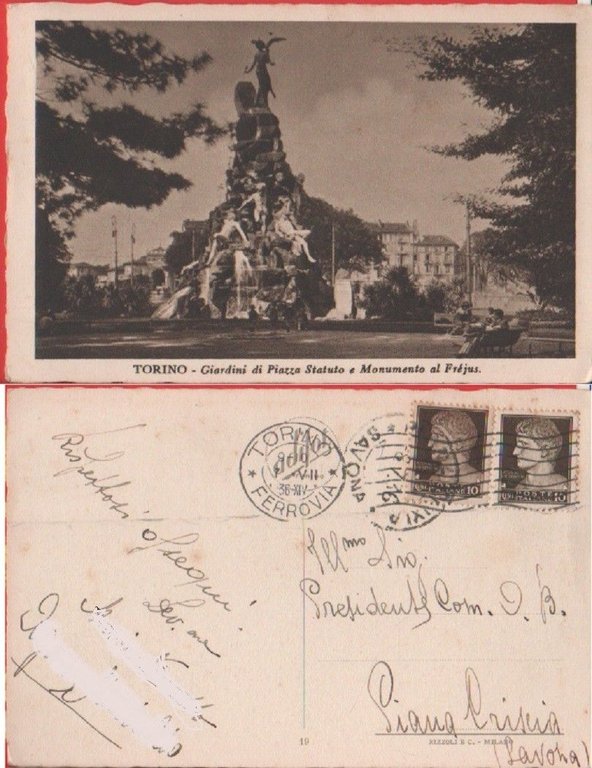 TORINO - Giardini di Piazza Statuto e Monumento al Fréjus.
TORINO
VII
36-XIV
FERROVIA
SAVONA
POSTE
10
POSTE
10
Rispettosi
Ossequi.
Dev.ma
Ill.mo Sig.
Presidente Com. O. B.
Piana Crixia
(Savona)
19
RIZZOLI E C. - MILANO